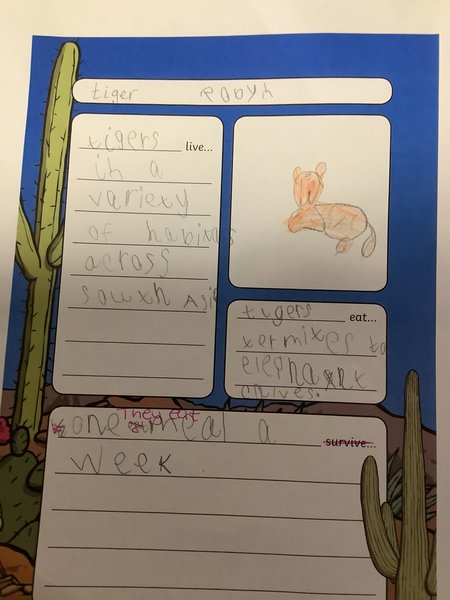 tiger Robyn
tigers live...
in a
variety
of habitats
across
south Asia
tigers eat...
termites to
elephant
calves.
They eat
one meal a survive...
week